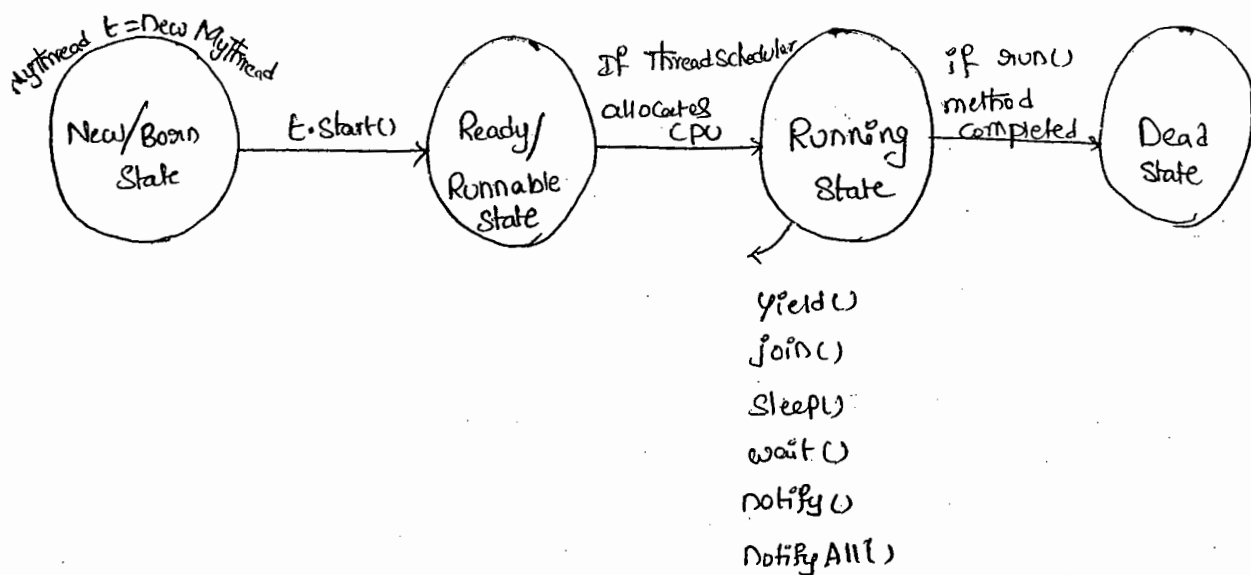 Mythread t = new Mythread
New/Born
State
t.start()
Ready/
Runnable
State
If ThreadScheduler
allocates
CPU
Running
State
if run()
method
completed
Dead
State
yield()
join()
sleep()
wait()
notify()
notifyAll()